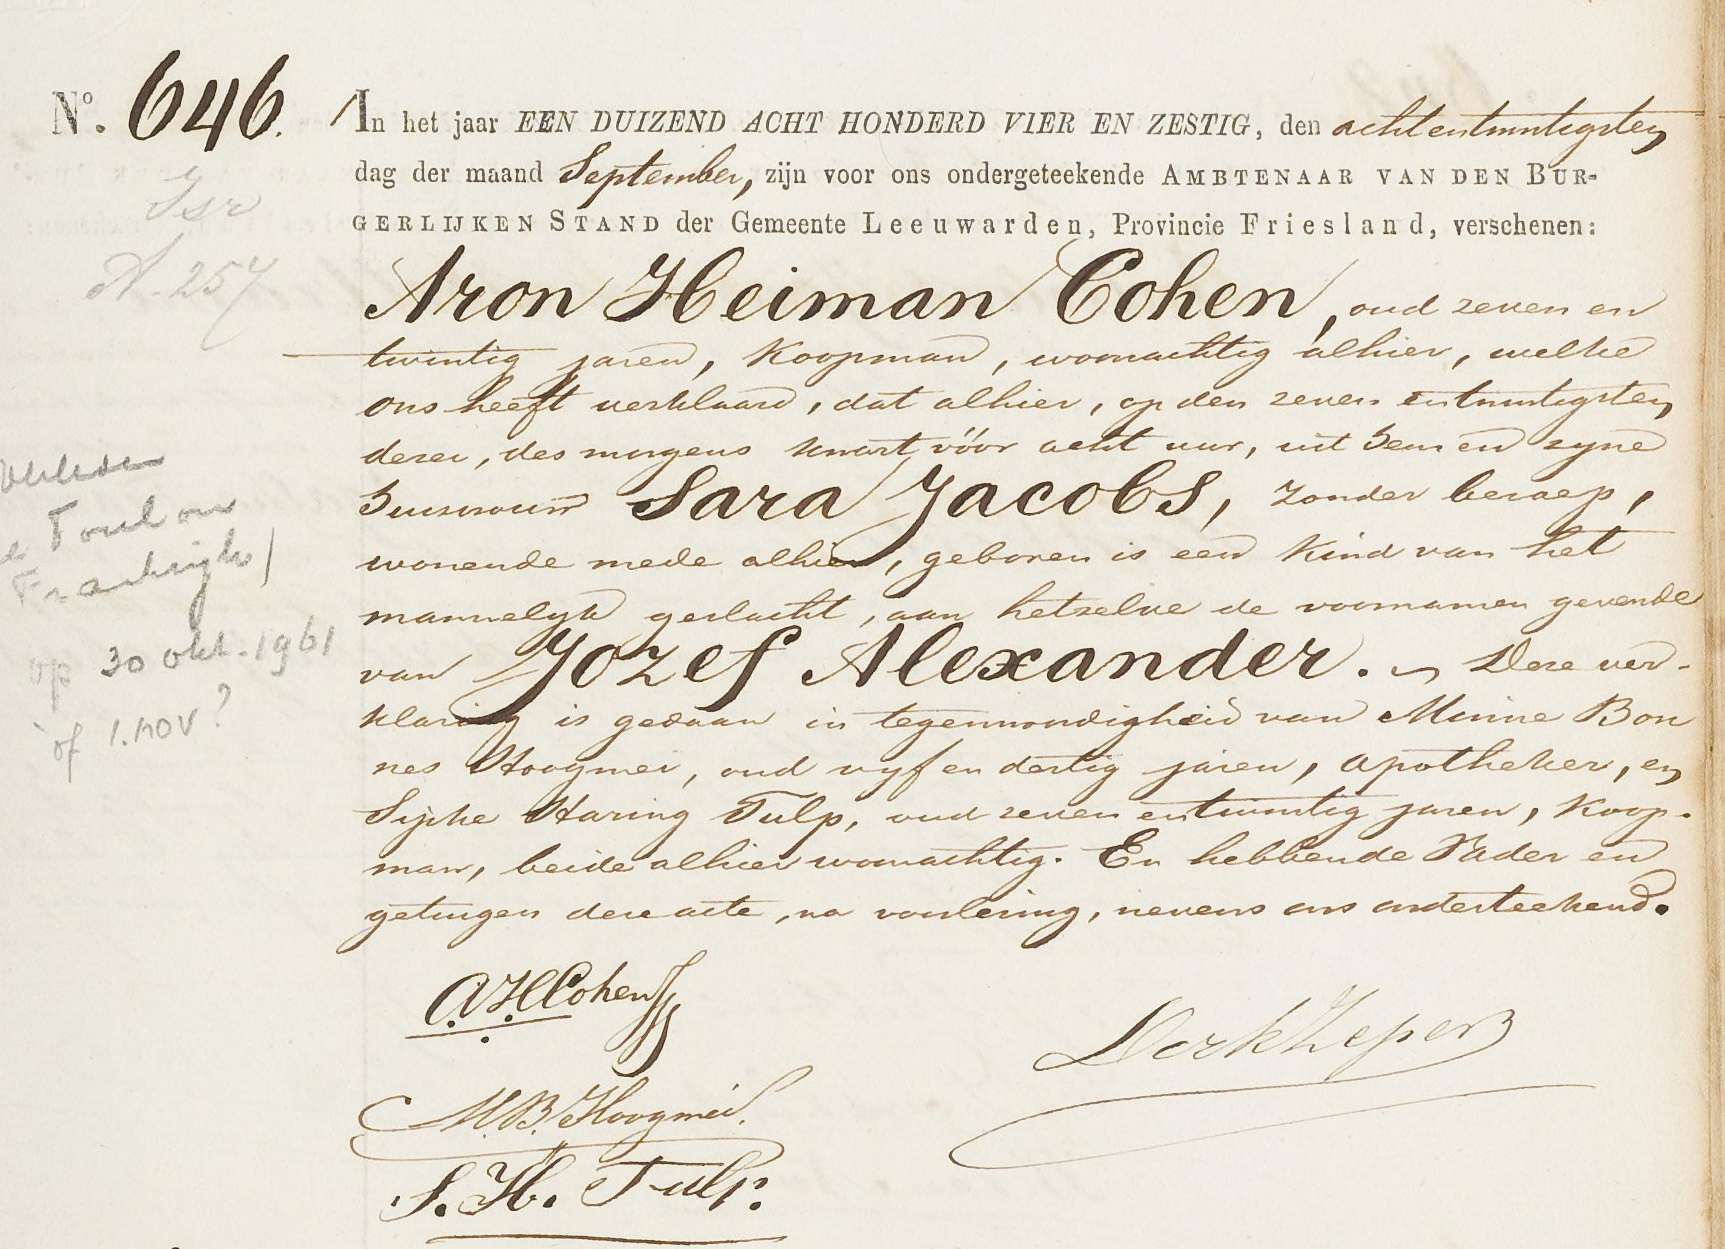 No. 646.
In het jaar EEN DUIZEND ACHT HONDERD VIER EN ZESTIG, den achtentwintigsten
dag der maand September, zijn voor ons ondergeteekende AMBTENAAR VAN DEN BUR-
GERLIJKEN STAND der Gemeente Leeuwarden, Provincie Friesland, verschenen:
Isr
A. 257
Aron Heiman Cohen, oud zeven en
twintig jaren, Koopman, woonachtig alhier, welke
ons heeft verklaard, dat alhier, op den zeven entwintigsten
dezer, des morgens kwart vóór acht uur, uit hem en zyne
huisvrouw Sara Jacobs, zonder beroep,
wonende mede alhier, geboren is een Kind van het
mannelyk geslacht, aan hetzelve de voornamen gevende
van Jozef Alexander. Deze ver-
klaring is gedaan in tegenwoordigheid van Minne Bon
nes Hoogmei, oud vyf en dertig jaren, apotheker, en
Sipke Haring Tulp, oud zeven entwintig jaren, Koop-
man, beide alhier woonachtig. En hebbende Vader en
getuigen deze acte, na voorlezing, nevens ons onderteekend.
Overleden
te Toulon
Frankrijk)
op 30 okt. 1961
of 1. nov?
A.H. Cohen
M.B. Hoogmei.
S. H. Tulp.
Dork Zeper